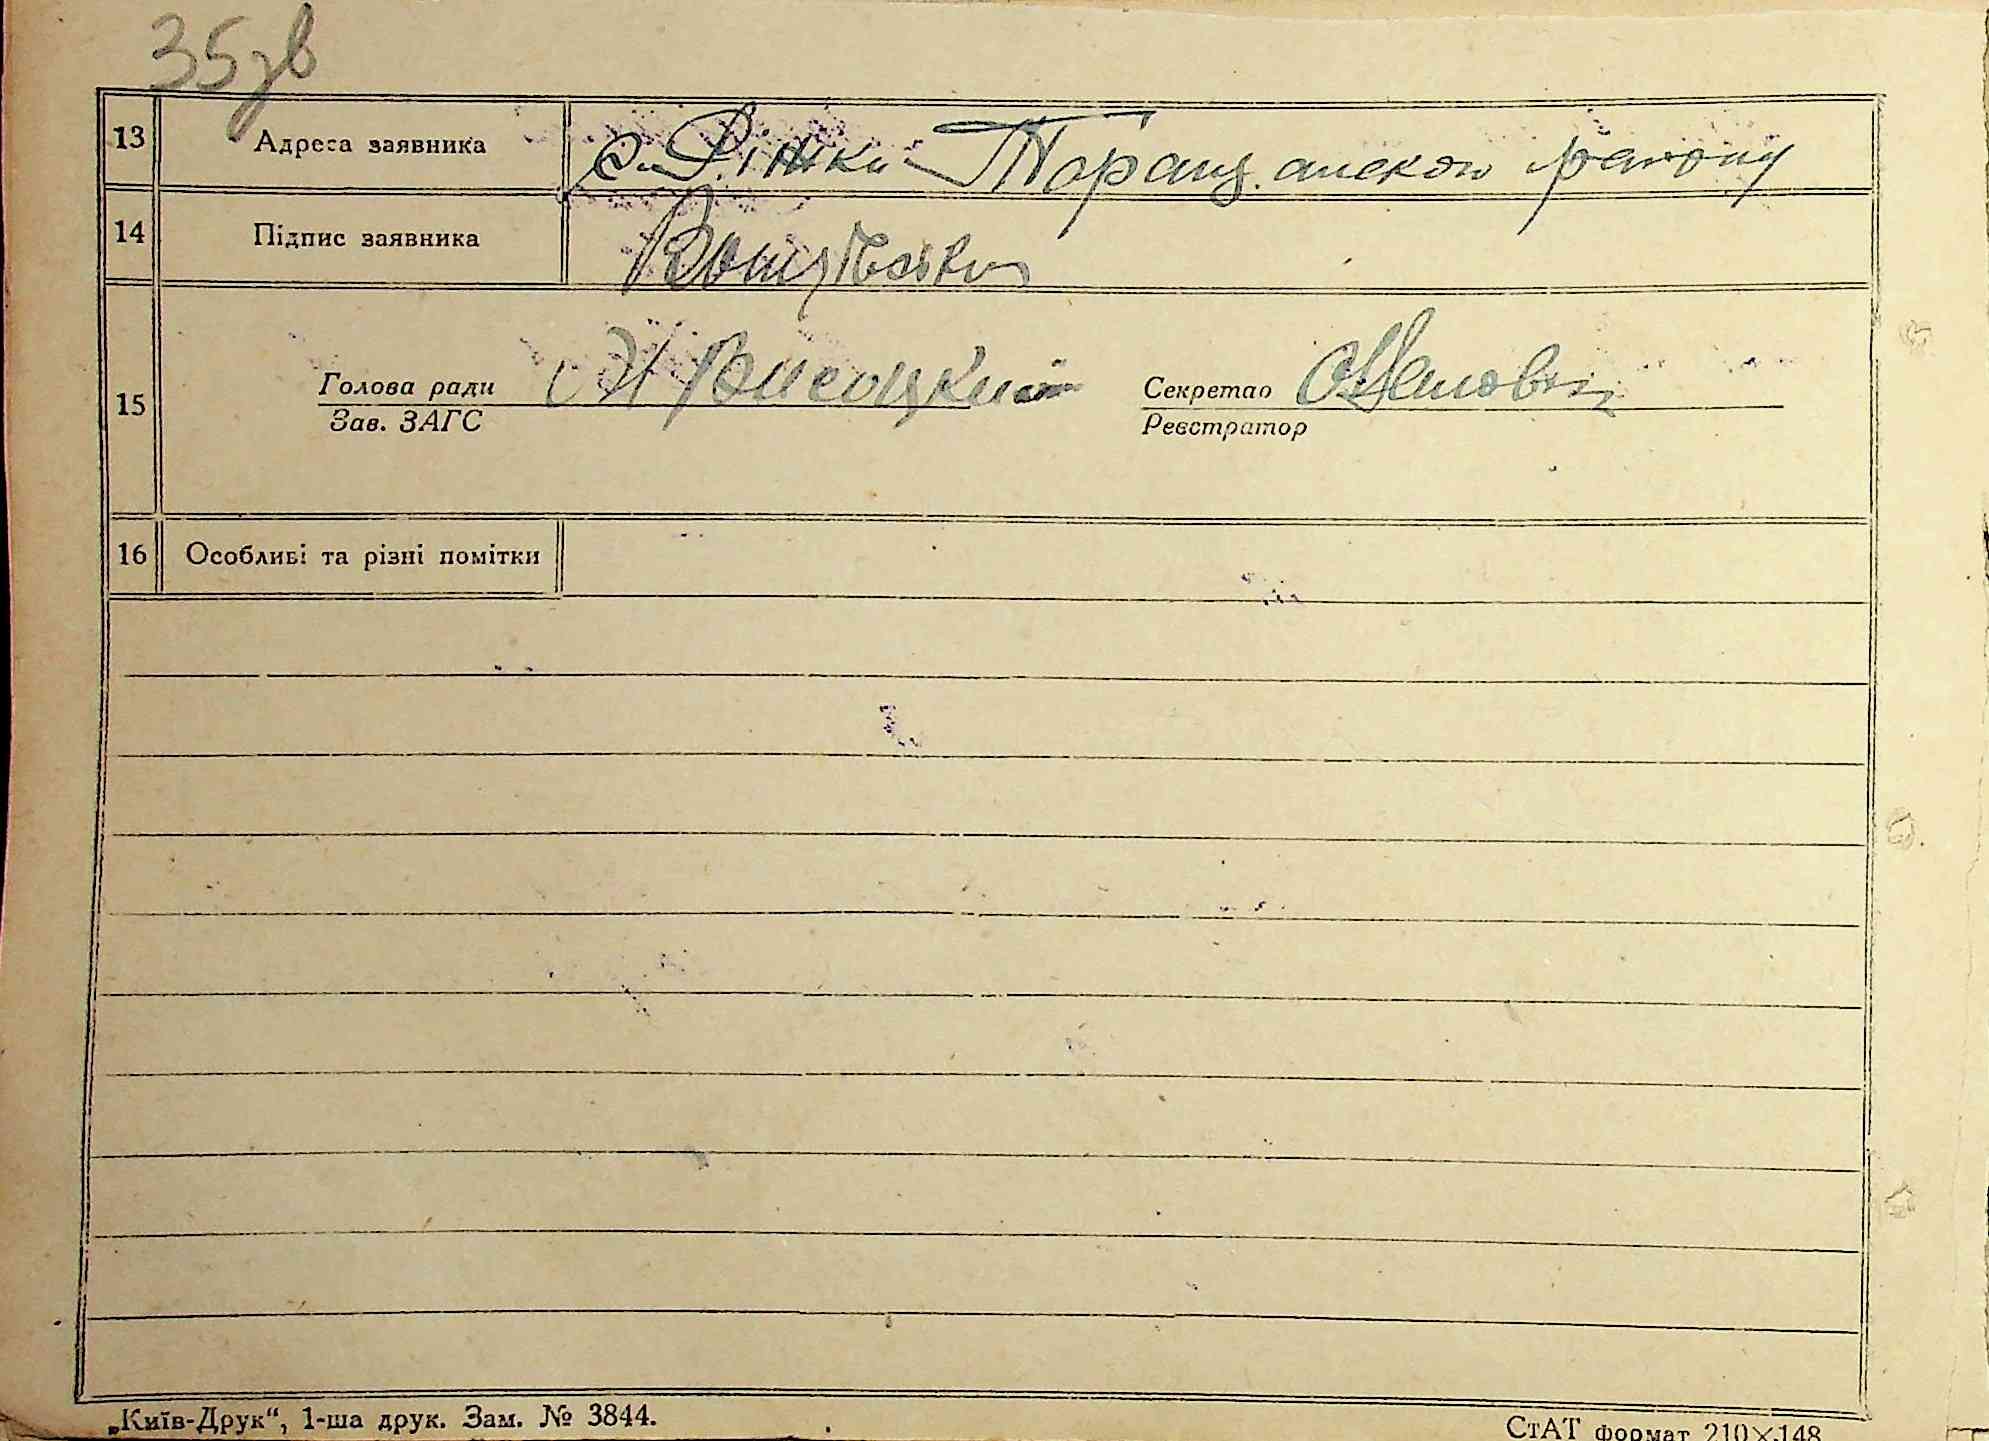 35зв
13 Адреса заявника с. Ріжки Таращанскою району
14 Підпис заявника
15 Голова ради Висоцкий Секретар
Зав. ЗАГС Реєстратор
16 Особливі та різні помітки
„Київ-Друк“, 1-ша друк. Зам. № 3844.
СтАТ формат 210×148